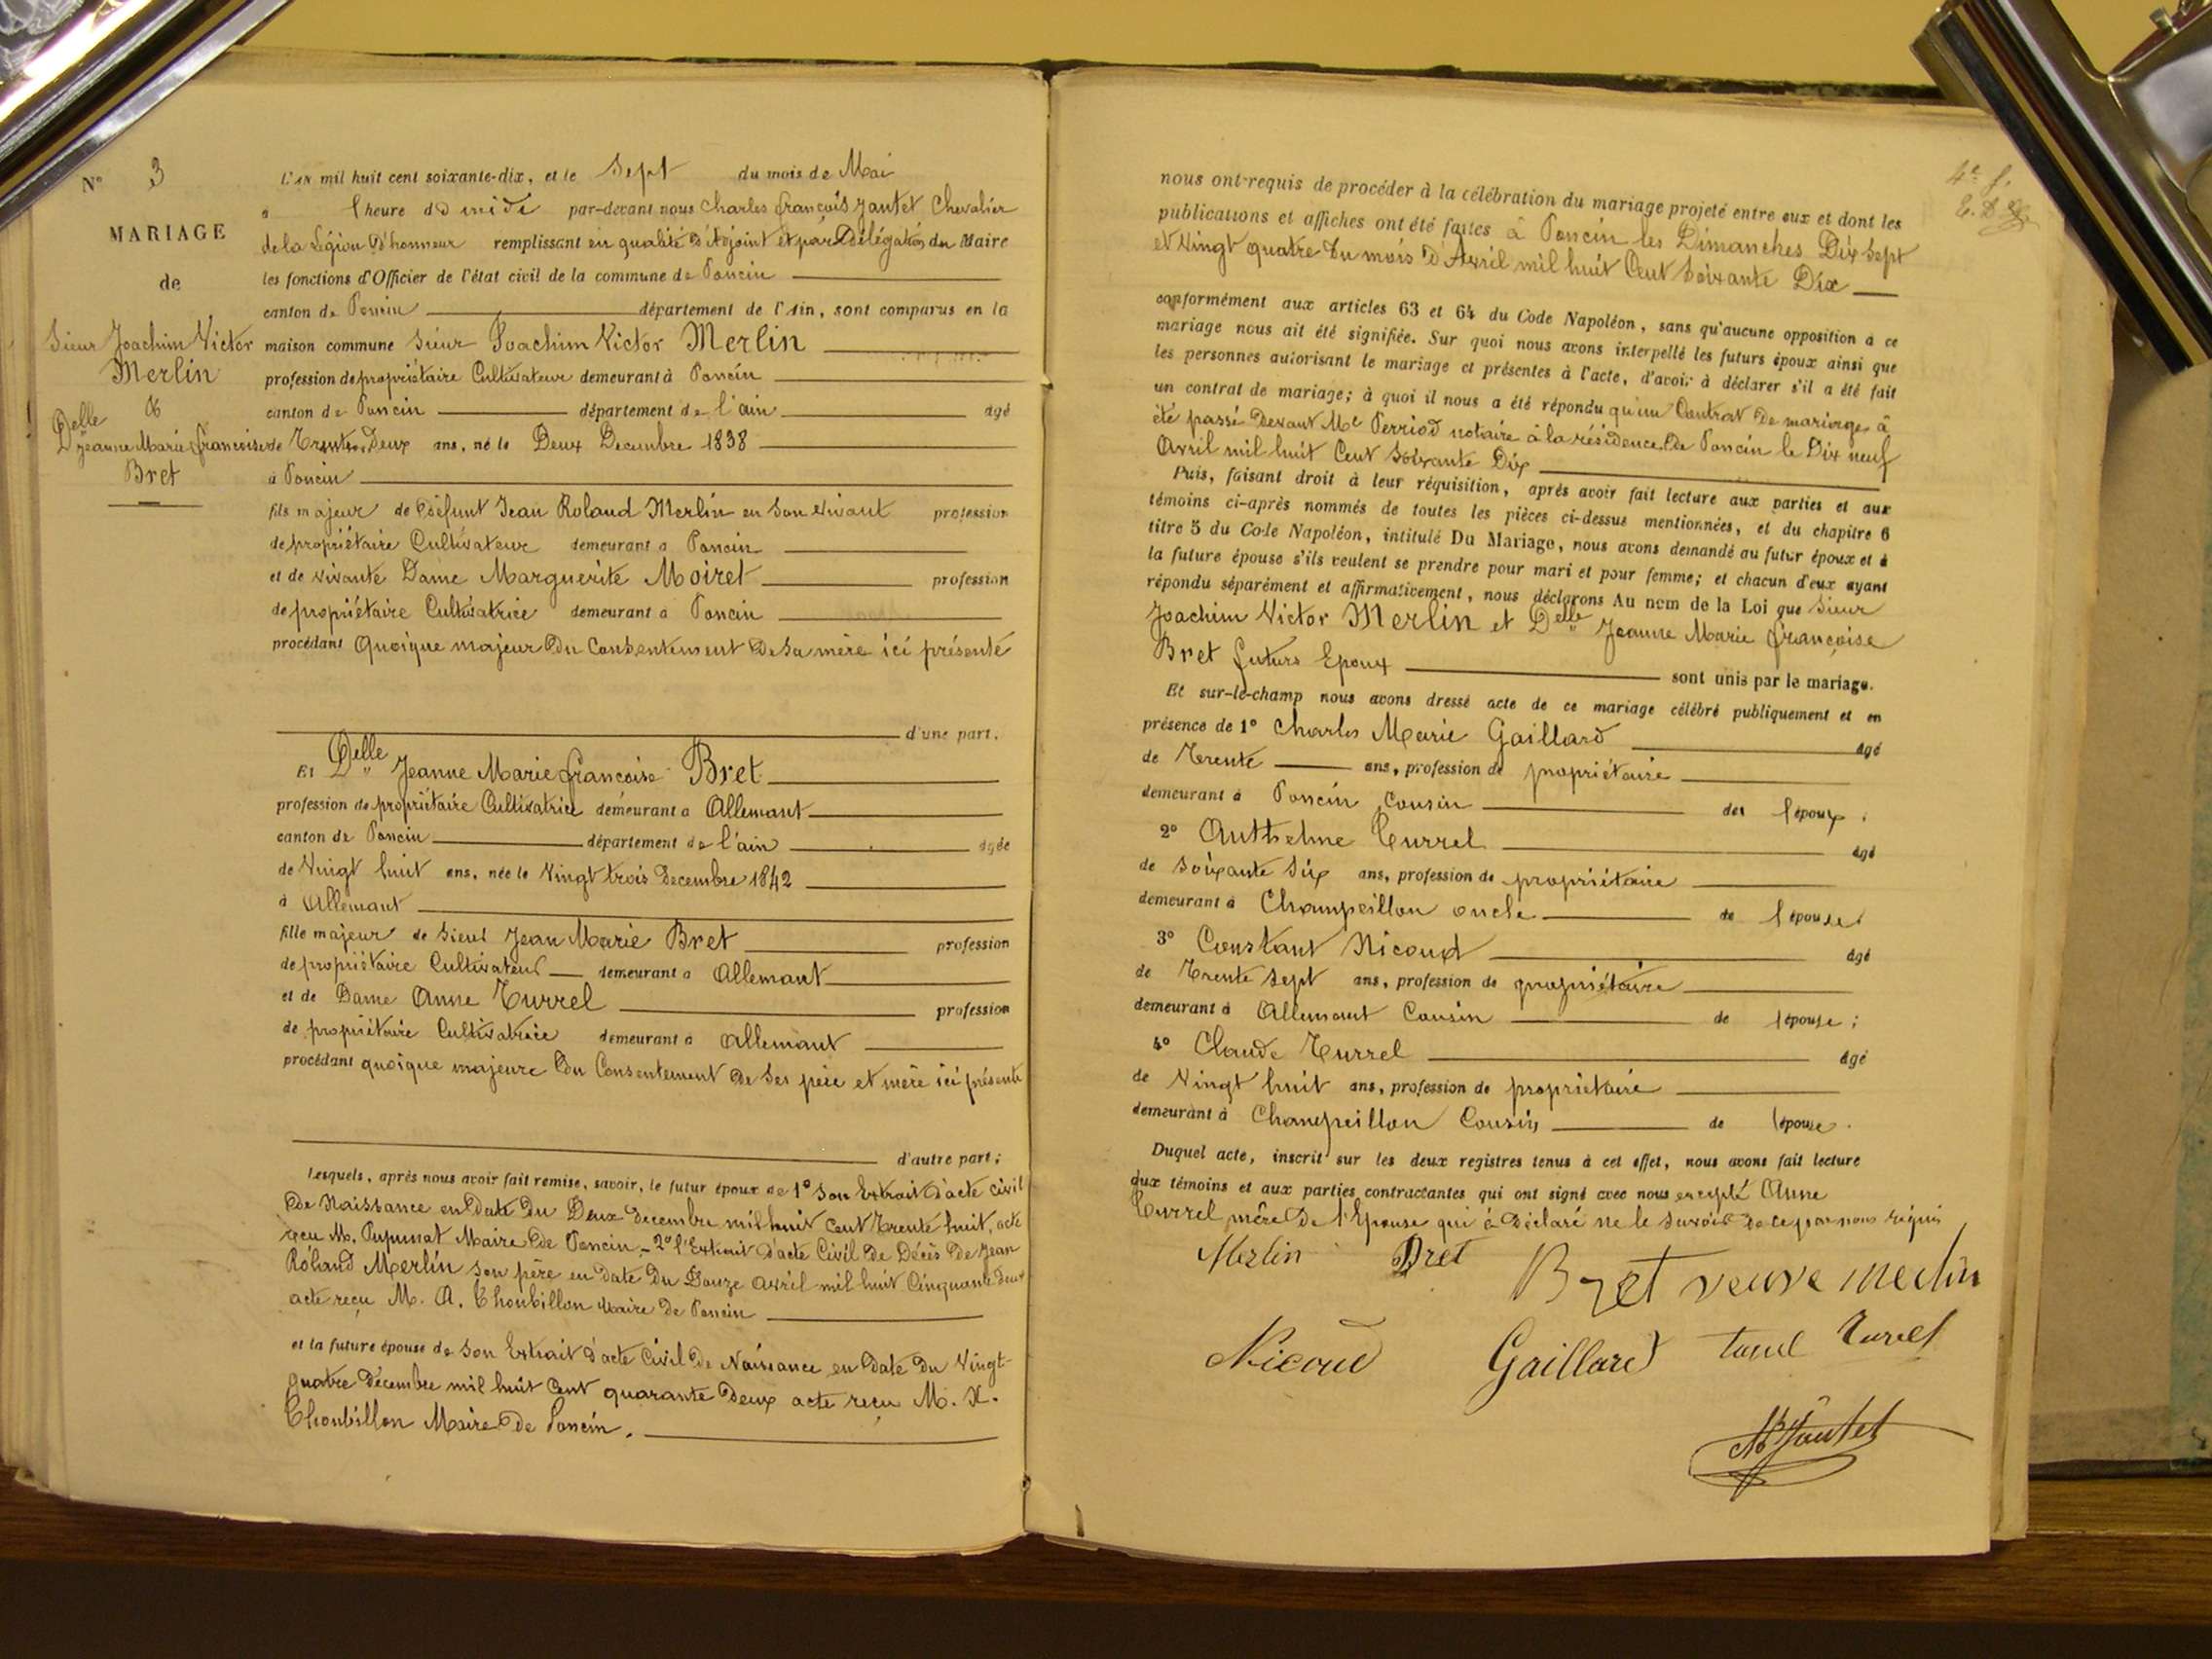 N° 3
MARIAGE
de
Sieur Joachim Victor
Merlin
&
Delle
Jeanne Marie françoise
Bret
L'AN mil huit cent soixante-dix, et le Sept du mois de Mai
à l heure de midi par-devant nous Charles françois Jantet Chevalier
de la Légion d'honneur remplissant en qualité d'Adjoint et par Délégation du Maire
les fonctions d'Officier de l'état civil de la commune de Poncin
canton de Poncin département de l'Ain, sont comparus en la
maison commune Sieur Joachim Victor Merlin
profession de propriétaire Cultivateur demeurant à Poncin
canton de Poncin département de l'ain âgé
de Trente Deux ans, né le Deux Decembre 1838
à Poncin
fils majeur de défunt Jean Roland Merlin en son vivant profession
de propriétaire Cultivateur demeurant à Poncin
et de vivante Dame Marguerite Moiret profession
de propriétaire Cultivatrice demeurant à Poncin
procédant quoique majeur du Consentement de sa mère ici présente
d'une part.
Et Delle Jeanne Marie françoise Bret
profession de propriétaire Cultivatrice demeurant à Allemant
canton de Poncin département de l'ain âgée
de Vingt huit ans, née le Vingt trois decembre 1842
à Allemant
fille majeur de Sieur Jean Marie Bret profession
de propriétaire Cultivateur demeurant à Allemant
et de Dame Anne Turrel profession
de propriétaire Cultivatrice demeurant à Allemant
procédant quoique majeure du Consentement de ses père et mère ici présents
d'autre part;
Lesquels, après nous avoir fait remise, savoir, le futur époux de 1° Son Extrait d'acte civil
de Naissance en date du Deux decembre mil huit cent Trente huit, acte
reçu M. Pupunat Maire de Poncin - 2° l'Extrait d'acte Civil de Décès de Jean
Roland Merlin son père en date du Douze avril mil huit Cinquante deux
acte reçu M. A. Thoubillon Maire de Poncin
et la future épouse de son Extrait d'acte Civil de Naissance en date du Vingt-
quatre Décembre mil huit Cent quarante Deux acte reçu M. A.
Thoubillon Maire de Poncin.
4e f.
nous ont requis de procéder à la célébration du mariage projeté entre eux et dont les
publications et affiches ont été faites à Poncin les Dimanches Dix Sept
et Vingt quatre du mois d'Avril mil huit Cent Soixante Dix
conformément aux articles 63 et 64 du Code Napoléon, sans qu'aucune opposition à ce
mariage nous ait été signifiée. Sur quoi nous avons interpellé les futurs époux ainsi que
les personnes autorisant le mariage et présentes à l'acte, d'avoir à déclarer s'il a été fait
un contrat de mariage; à quoi il nous a été répondu qu'un Contrat de mariage à
été passé devant Me Perriod notaire à la résidence de Poncin le Dix neuf
Avril mil huit Cent Soixante Dix
Puis, faisant droit à leur réquisition, après avoir fait lecture aux parties et aux
témoins ci-après nommés de toutes les pièces ci-dessus mentionnées, et du chapitre 6
titre 5 du Code Napoléon, intitulé Du Mariage, nous avons demandé au futur époux et à
la future épouse s'ils veulent se prendre pour mari et pour femme; et chacun d'eux ayant
répondu séparément et affirmativement, nous déclarons Au nom de la Loi que Sieur
Joachim Victor Merlin et Delle Jeanne Marie françoise
Bret futurs Epoux sont unis par le mariage.
Et sur-le-champ nous avons dressé acte de ce mariage célébré publiquement et en
présence de 1° Charles Marie Gaillard âgé
de Trente ans, profession de propriétaire
demeurant à Poncin Cousin de l'époux.
2° Anthelme Turrel âgé
de Soixante Six ans, profession de propriétaire
demeurant à Champeillon oncle de l'épouse
3° Constant Nicoud âgé
de Trente Sept ans, profession de propriétaire
demeurant à Allemant Cousin de l'épouse;
4° Claude Turrel âgé
de Vingt huit ans, profession de propriétaire
demeurant à Champeillon Cousin de l'épouse.
Duquel acte, inscrit sur les deux registres tenus à cet effet, nous avons fait lecture
aux témoins et aux parties contractantes qui ont signé avec nous excepté Anne
Turrel mère de l'Epouse qui à déclaré ne le savoir de ce par nous requis
Merlin Bret Bret veuve Merlin
Nicoud Gaillard turel Turel
Jantet